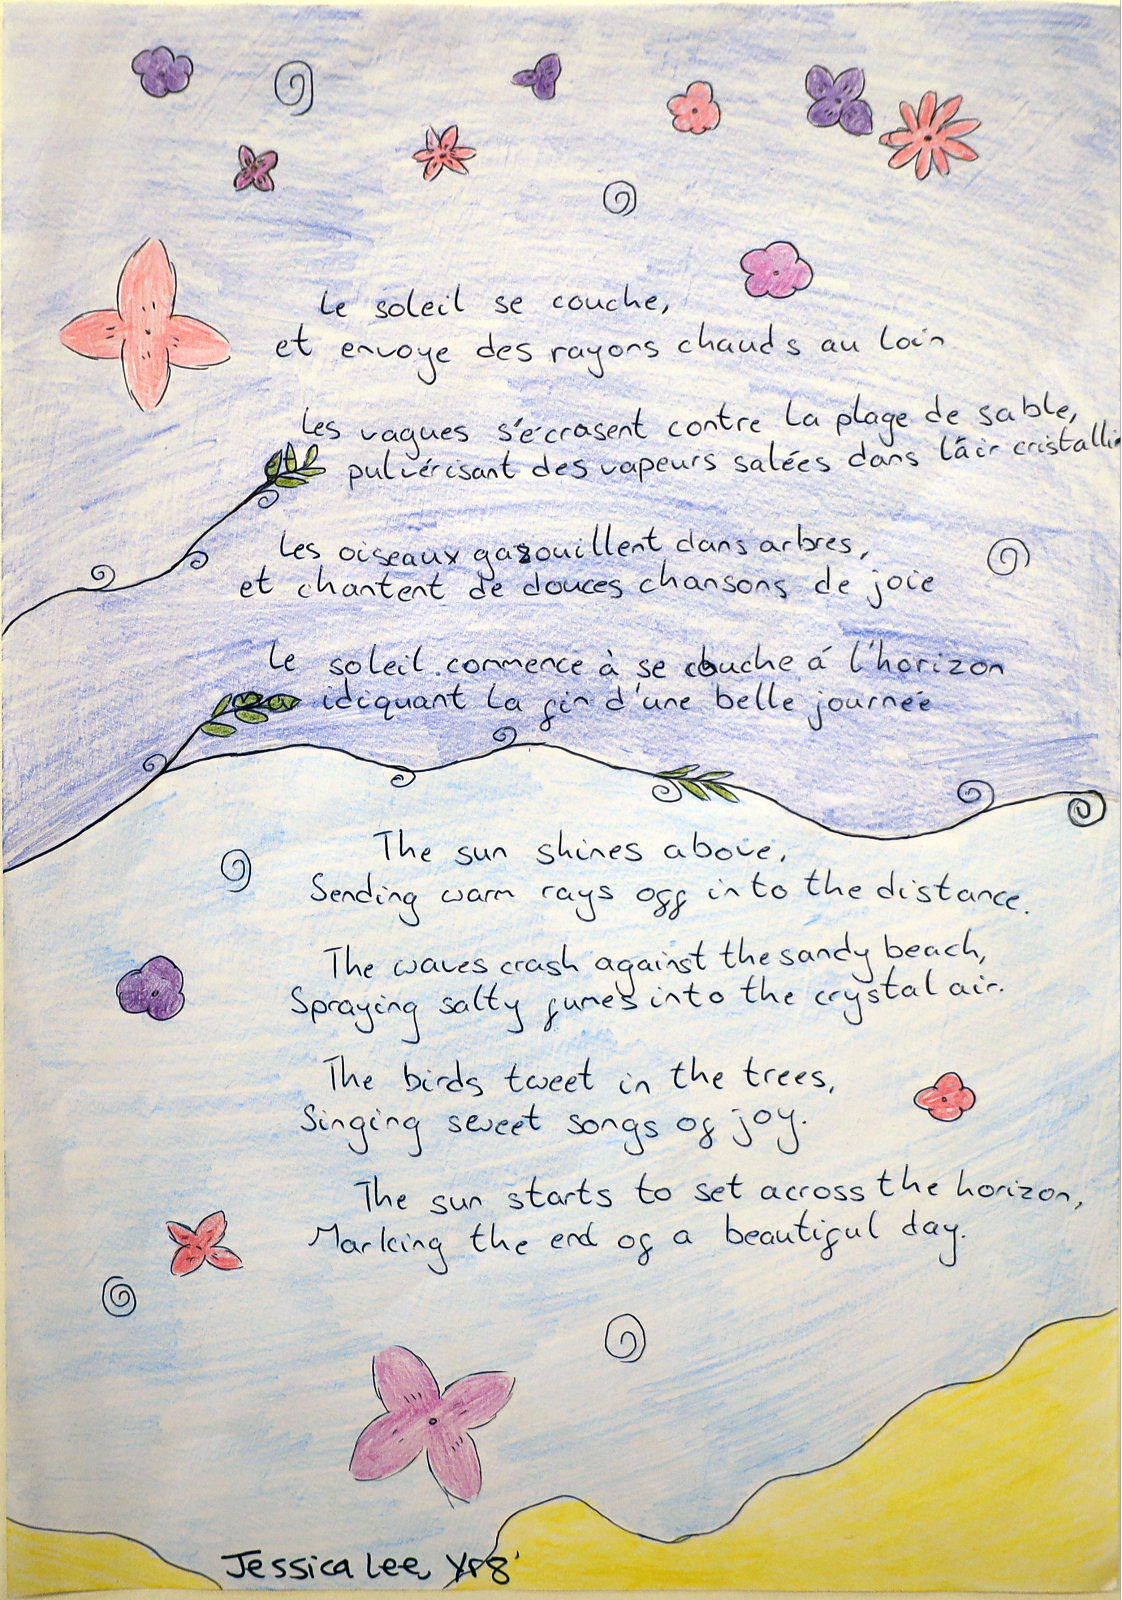 Le soleil se couche,
et envoye des rayons chauds au loin
Les vagues s'écrasent contre la plage de sable,
pulvérisant des vapeurs salées dans l'áir cristalli
Les oiseaux gazouillent dans arbres,
et chantent de douces chansons de joie
Le soleil commence à se couche á l'horizon
idiquant la fin d'une belle journée
The sun shines above,
Sending warm rays off into the distance.
The waves crash against the sandy beach,
Spraying salty fumes into the crystal air.
The birds tweet in the trees,
Singing sweet songs of joy.
The sun starts to set across the horizon,
Marking the end of a beautiful day.
Jessica Lee, Yr8